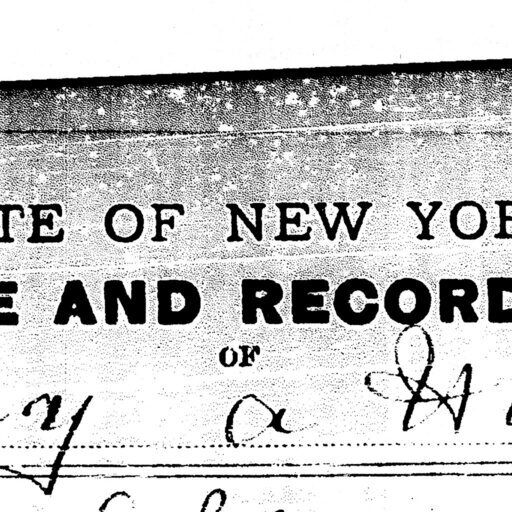 TE OF NEW YOR
E AND RECORD
OF
y a H